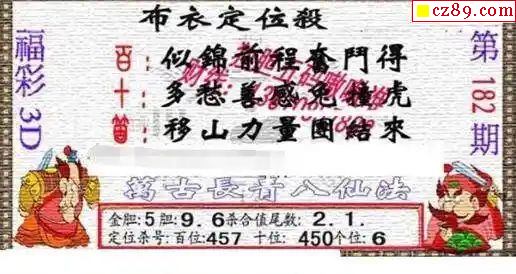 cz89.com
布衣定位殺
福彩3D
第182期
百:似錦前程奮鬥得
十:多愁善感兔撞虎
個:移山力量團結來
萬古長青八仙法
金胆:5胆:9.6杀合值尾数:2.1.
定位杀号:百位:457 十位:450个位:6